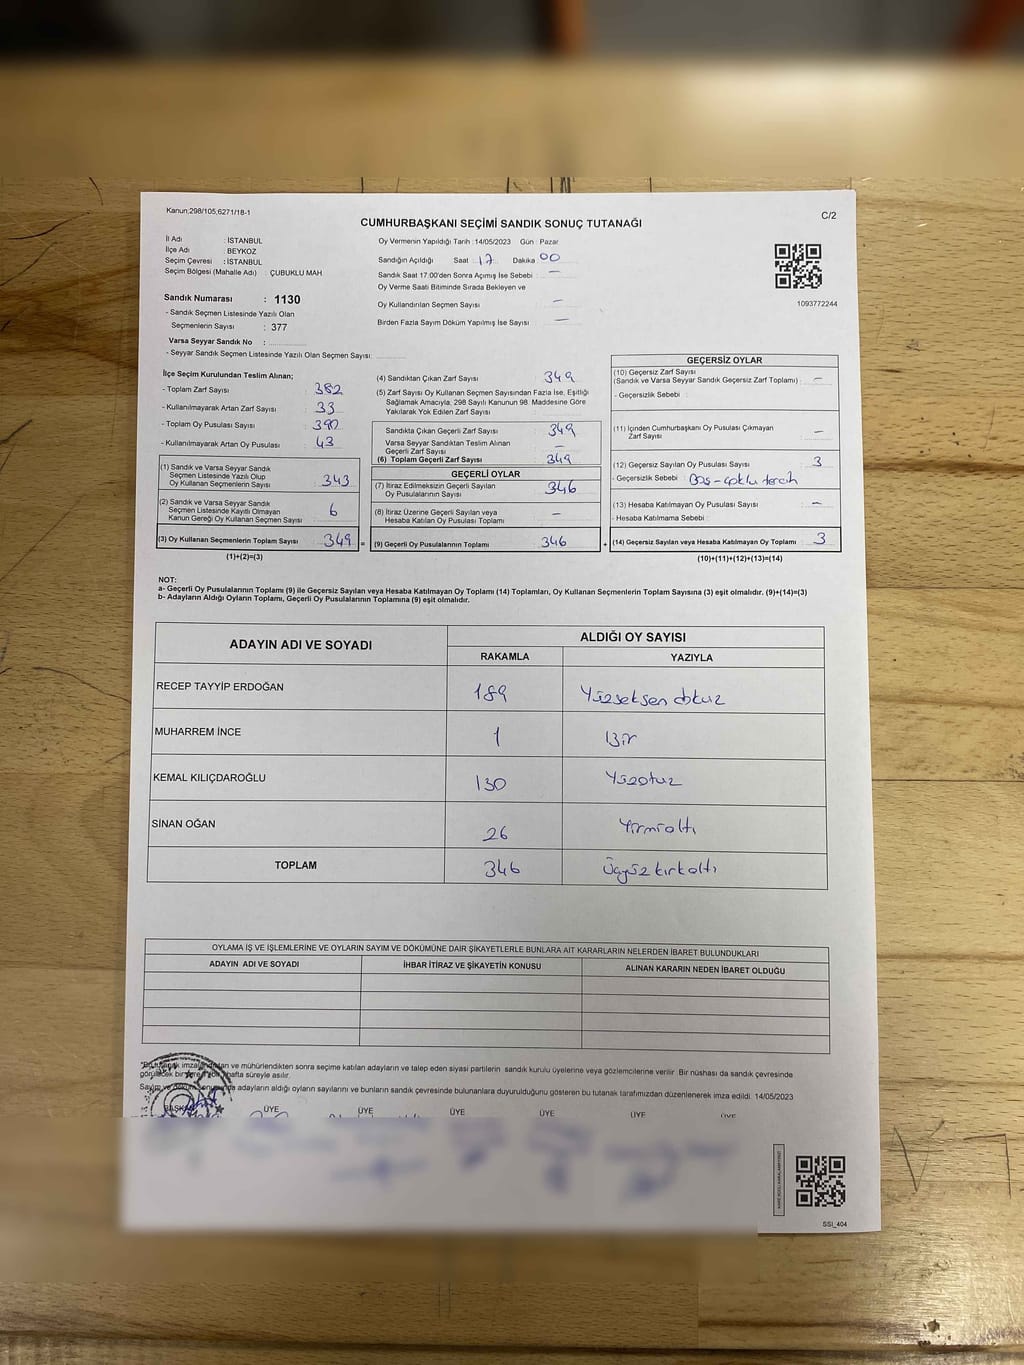 Kanun;298/105,6271/18-1
C/2
CUMHURBAŞKANI SEÇİMİ SANDIK SONUÇ TUTANAĞI
İl Adı : İSTANBUL
İlçe Adı : BEYKOZ
Seçim Çevresi : İSTANBUL
Seçim Bölgesi (Mahalle Adı) : ÇUBUKLU MAH
Sandık Numarası : 1130
- Sandık Seçmen Listesinde Yazılı Olan
Seçmenlerin Sayısı : 377
Varsa Seyyar Sandık No :
- Seyyar Sandık Seçmen Listesinde Yazılı Olan Seçmen Sayısı:
Oy Vermenin Yapıldığı Tarih : 14/05/2023 Gün : Pazar
Sandığın Açıldığı Saat 17 Dakika 00
Sandık Saat 17:00'den Sonra Açımış İse Sebebi : —
Oy Verme Saati Bitiminde Sırada Bekleyen ve
Oy Kullandırılan Seçmen Sayısı —
Birden Fazla Sayım Döküm Yapılmış İse Sayısı —
1093772244
İlçe Seçim Kurulundan Teslim Alınan;
- Toplam Zarf Sayısı 382
- Kullanılmayarak Artan Zarf Sayısı 33
- Toplam Oy Pusulası Sayısı
- Kullanılmayarak Artan Oy Pusulası 43
(1) Sandık ve Varsa Seyyar Sandık
Seçmen Listesinde Yazılı Olup
Oy Kullanan Seçmenlerin Sayısı 343
(2) Sandık ve Varsa Seyyar Sandık
Seçmen Listesinde Kayıtlı Olmayan
Kanun Gereği Oy Kullanan Seçmen Sayısı 6
(3) Oy Kullanan Seçmenlerin Toplam Sayısı 349 =
(1)+(2)=(3)
(4) Sandıktan Çıkan Zarf Sayısı 349
(5) Zarf Sayısı Oy Kullanan Seçmen Sayısından Fazla İse, Eşitliği
Sağlamak Amacıyla; 298 Sayılı Kanunun 98. Maddesine Göre
Yakılarak Yok Edilen Zarf Sayısı
Sandıkta Çıkan Geçerli Zarf Sayısı 349
Varsa Seyyar Sandıktan Teslim Alınan
Geçerli Zarf Sayısı —
(6) Toplam Geçerli Zarf Sayısı 349
GEÇERLİ OYLAR
(7) İtiraz Edilmeksizin Geçerli Sayılan
Oy Pusulalarının Sayısı 346
(8) İtiraz Üzerine Geçerli Sayılan veya
Hesaba Katılan Oy Pusulası Toplamı —
(9) Geçerli Oy Pusulalarının Toplamı 346 +
GEÇERSİZ OYLAR
(10) Geçersiz Zarf Sayısı
(Sandık ve Varsa Seyyar Sandık Geçersiz Zarf Toplamı) : —
- Geçersizlik Sebebi :
(11) İçinden Cumhurbaşkanı Oy Pusulası Çıkmayan
Zarf Sayısı —
(12) Geçersiz Sayılan Oy Pusulası Sayısı 3
- Geçersizlik Sebebi : Boş-çoklu tercih
(13) Hesaba Katılmayan Oy Pusulası Sayısı —
- Hesaba Katılmama Sebebi :
(14) Geçersiz Sayılan veya Hesaba Katılmayan Oy Toplamı 3
(10)+(11)+(12)+(13)=(14)
NOT:
a- Geçerli Oy Pusulalarının Toplamı (9) ile Geçersiz Sayılan veya Hesaba Katılmayan Oy Toplamı (14) Toplamları, Oy Kullanan Seçmenlerin Toplam Sayısına (3) eşit olmalıdır. (9)+(14)=(3)
b- Adayların Aldığı Oyların Toplamı, Geçerli Oy Pusulalarının Toplamına (9) eşit olmalıdır.
ADAYIN ADI VE SOYADI
ALDIĞI OY SAYISI
RAKAMLA YAZIYLA
RECEP TAYYİP ERDOĞAN 189 Yüzseksen dokuz
MUHARREM İNCE 1 Bir
KEMAL KILIÇDAROĞLU 130 Yüzotuz
SİNAN OĞAN 26 Yirmialtı
TOPLAM 346 Üçyüzkırkaltı
OYLAMA İŞ VE İŞLEMLERİNE VE OYLARIN SAYIM VE DÖKÜMÜNE DAİR ŞİKAYETLERLE BUNLARA AİT KARARLARIN NELERDEN İBARET BULUNDUKLARI
ADAYIN ADI VE SOYADI İHBAR İTİRAZ VE ŞİKAYETİN KONUSU ALINAN KARARIN NEDEN İBARET OLDUĞU
ve mühürlendikten sonra seçime katılan adayların ve talep eden siyasi partilerin sandık kurulu üyelerine veya gözlemcilerine verilir. Bir nüshası da sandık çevresinde
hafta süreyle asılır.
adayların aldığı oyların sayılarını ve bunların sandık çevresinde bulunanlara duyurulduğunu gösteren bu tutanak tarafımızdan düzenlenerek imza edildi. 14/05/2023
BAŞKAN ÜYE ÜYE ÜYE ÜYE ÜYE ÜYE
SSI_404